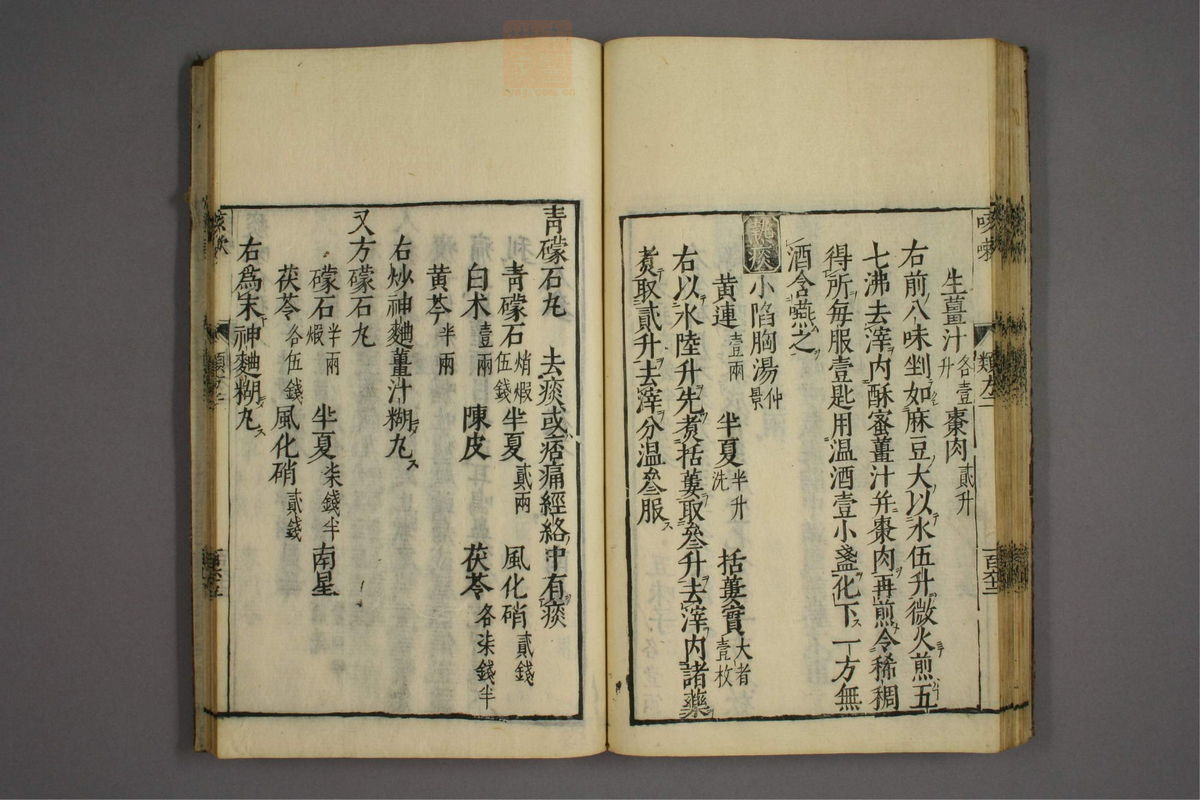 生薑汁各壹升棗肉貳升
右前八味剉如麻豆大以水伍升微火煎五
七沸去滓内酥蜜薑汁并棗肉再煎令稀稠
得所每服壹匙用温酒壹小盞化下一方無
酒含嚥之
熱痰小陷胸湯仲景
黄連壹兩半夏半升洗括蔞實大者壹枚
右以水陸升先煑括蔞取叄升去滓内諸藥
煑取貳升去滓分温叄服
青礞石丸去痰或痞痛經絡中有痰
青礞石焇煆伍錢半夏貳兩風化硝貳錢
白术壹兩陳皮茯苓各柒錢半
黄芩半兩
右炒神麯薑汁糊丸
又方礞石丸
礞石半兩煆半夏柒錢半南星
茯苓各伍錢風化硝貳錢
右爲末神麯糊丸